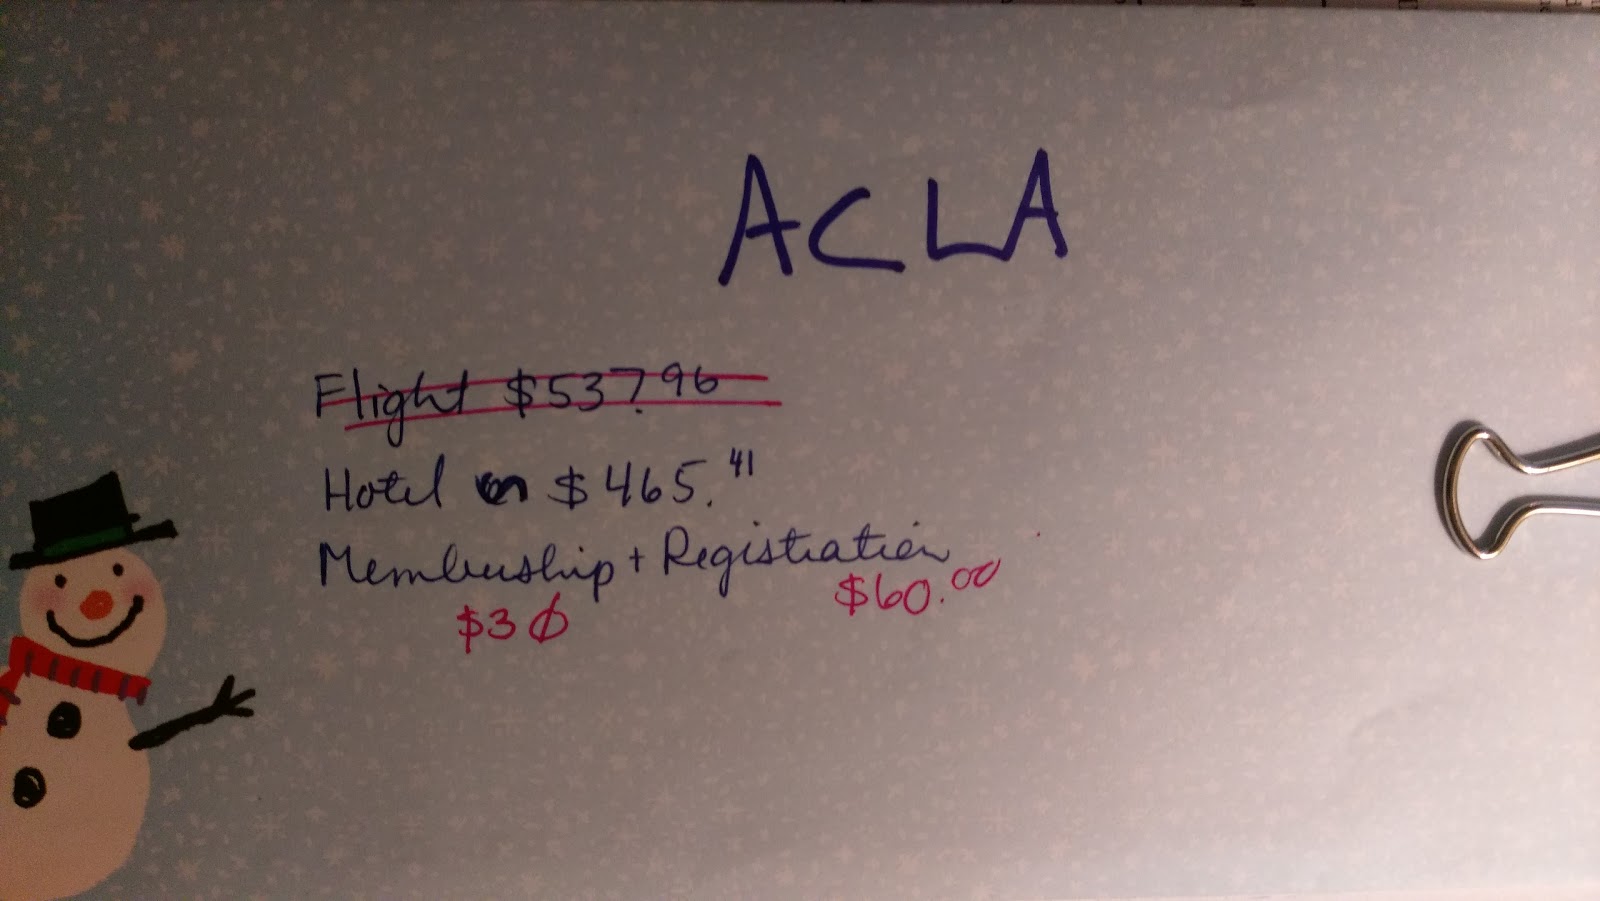 ACLA
Flight $537.96
Hotel $465.41
Membership + Registration
$30 $60.00